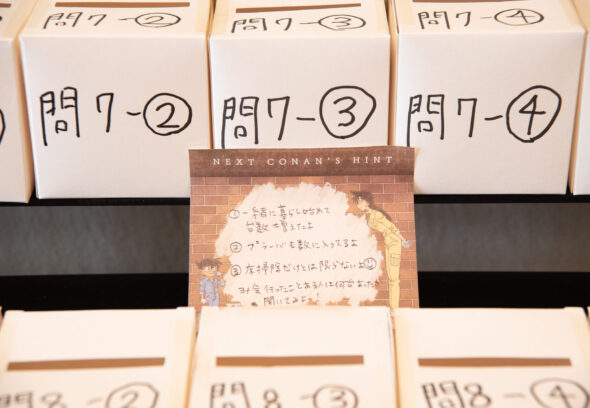 問7-②
問7-③
問7-④
問7-②
問7-③
問7-④
NEXT CONAN'S HINT
①一緒に暮らし始めて
台数増えたよ
②ブラーバも数に入ってるよ
③床掃除だけとは限らないよ
行ったことある人は何台あったか
聞いてみよ!
問8-②
問8-③
問8-④